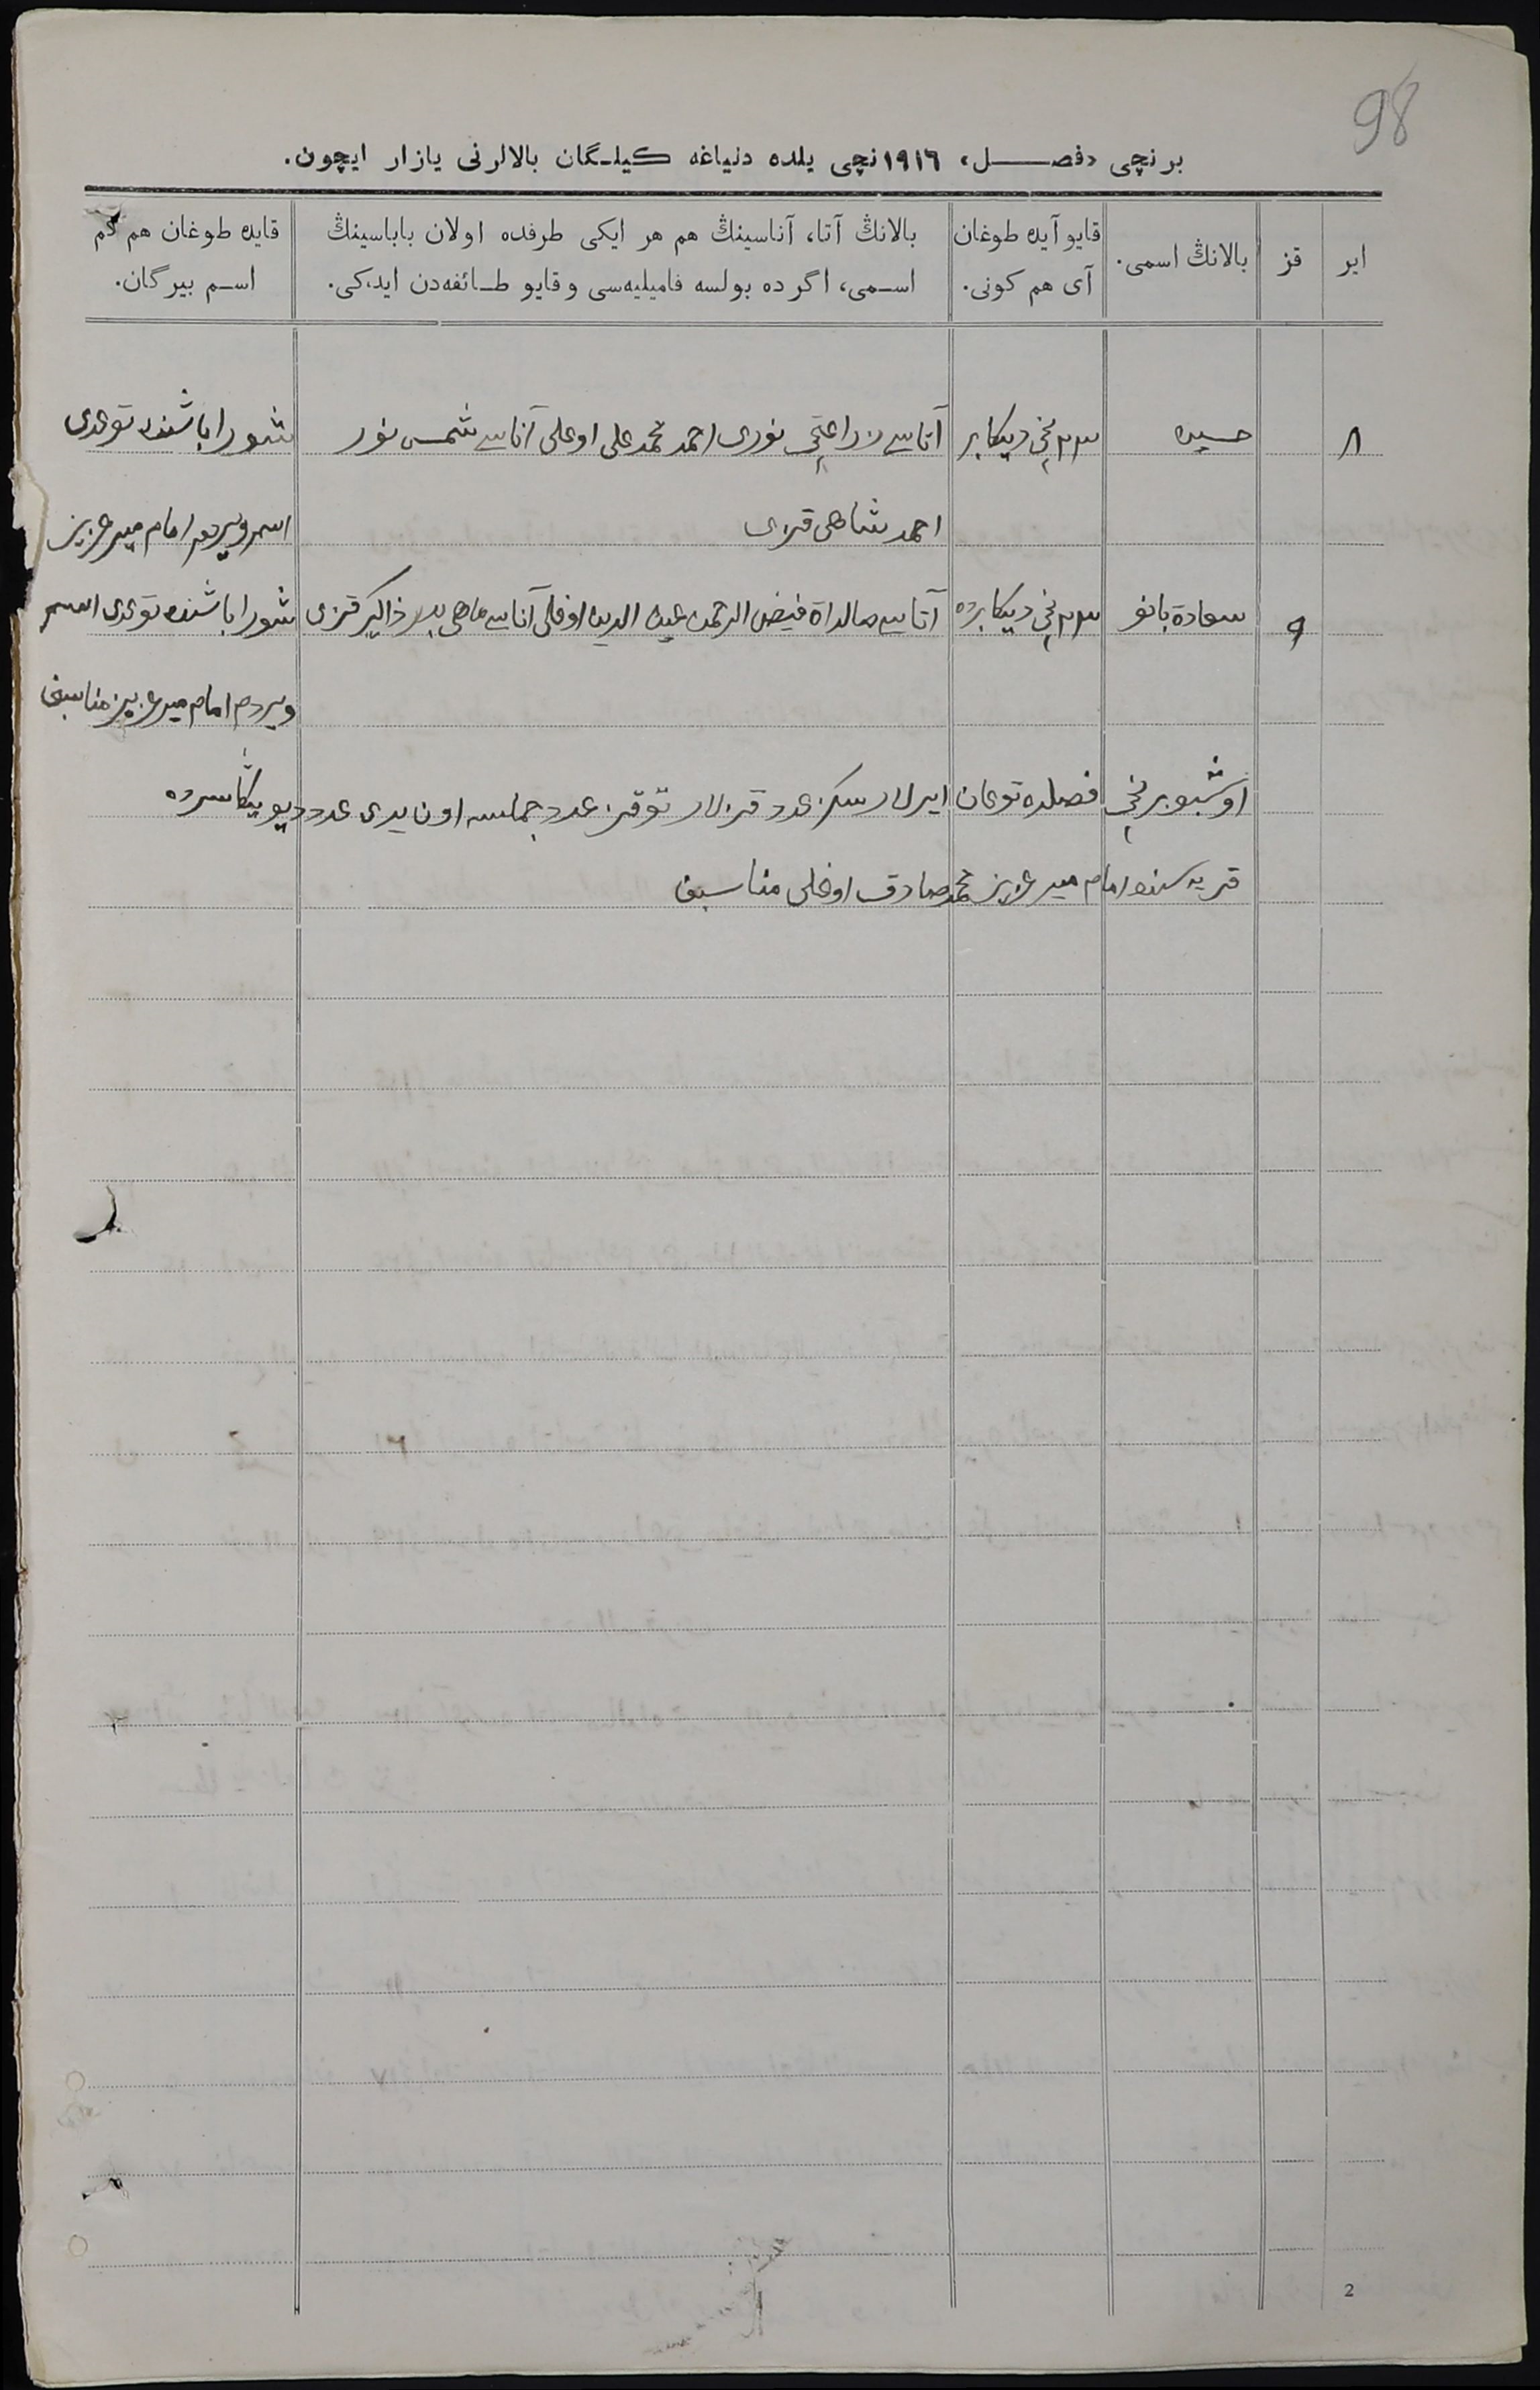 98
برنچی «فصل» ١٩١٦نچی یلده دنیاغه كیلـگان بالالرنی یازار ایچون.
ایر
قز
بالانڭ اسمی.
قایو آیده طوغان
آی هم كونی.
بالانڭ آتا، آناسینڭ هم هر ایكی طرفده اولان باباسینڭ
اسـمی، اگر ده بولسه فامیلیه‌سی و قایو طـائفه‌دن ایدكی.
قایده طوغان هم كم
اسـم بیرگان.
٨ ٢٣ نچی دیكابر آتاسی زراعتچی نوری احمد محمد علی اوغلی آناسی شمس نور شورا باشنده توغدی
احمد شاهی قزی اسم ویردم امام میر عزیز
٩ سعادة بانو ٢٣ نچی دیكابرده آتاسی فیض الرحمن عین الدین اوغلی آناسی ماهی ذاكیر قزی شورا باشنده توغدی اسم
ویردم امام میر عزیز مناسبف
اوشبو برنچی فصلده توغان ایرلار سكز عدد قزلار توقز عدد جملسه اون یدی عدددیو بیكاسرده
قریه سنده امام میر عزیز محمد صادق اوغلی مناسبف
2